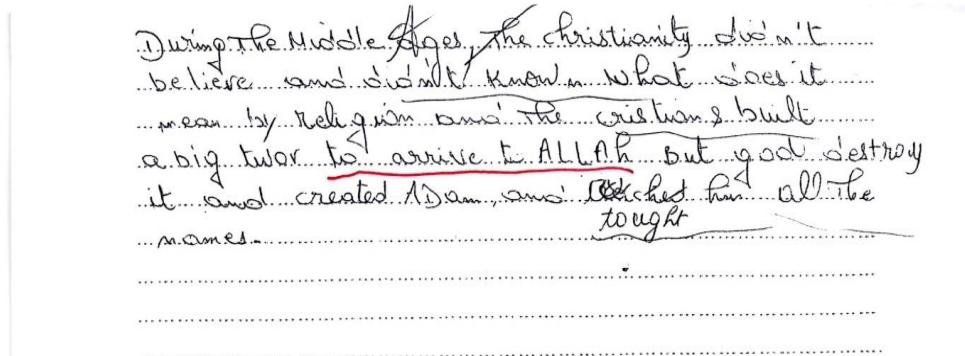 During The Middle Ages, The christianity didn't
believe and didn't known what does it
mean by Religion and The cristians built
a big twor to arrive to ALLAh But god destroy
it and created ADam, and ched him all The
tought
names.